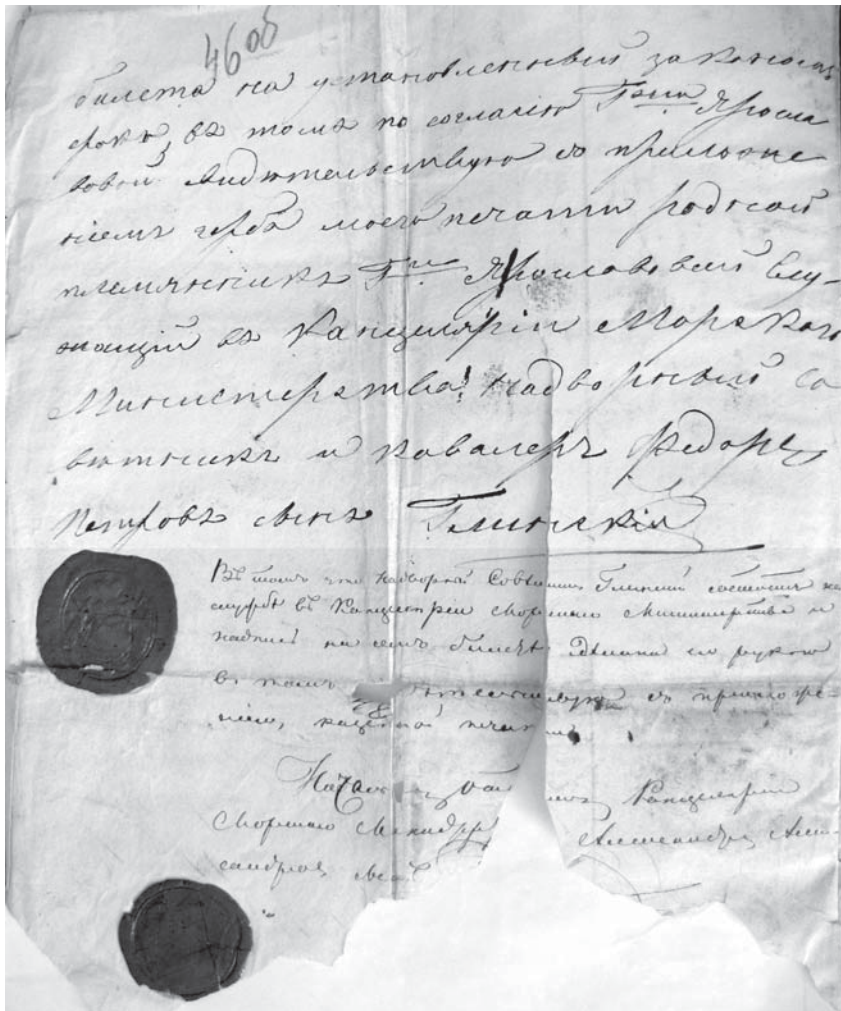 46 об
билета на установленный законом
срокъ, въ томъ по согласию Гжи Яросла
вовой свидѣтельствую съ приложе
ніемъ герба моего печати родной
племянникъ Гжи Ярославовой слу-
жащій въ Канцеляріи Морскаго
Министерства надворный со
вѣтникъ и кавалеръ Федоръ
Петровъ сынъ Глинскій
Въ томъ что надворный Совѣтникъ Глинскій состоитъ на
службѣ въ Канцеляріи Морскаго Министерства и
надпись на семъ билетѣ сдѣлана его рукою
въ томъ съ приложе-
ніемъ казенной печати
Канцеляріи
Морскаго Александръ Алек-
сандровъ сынъ